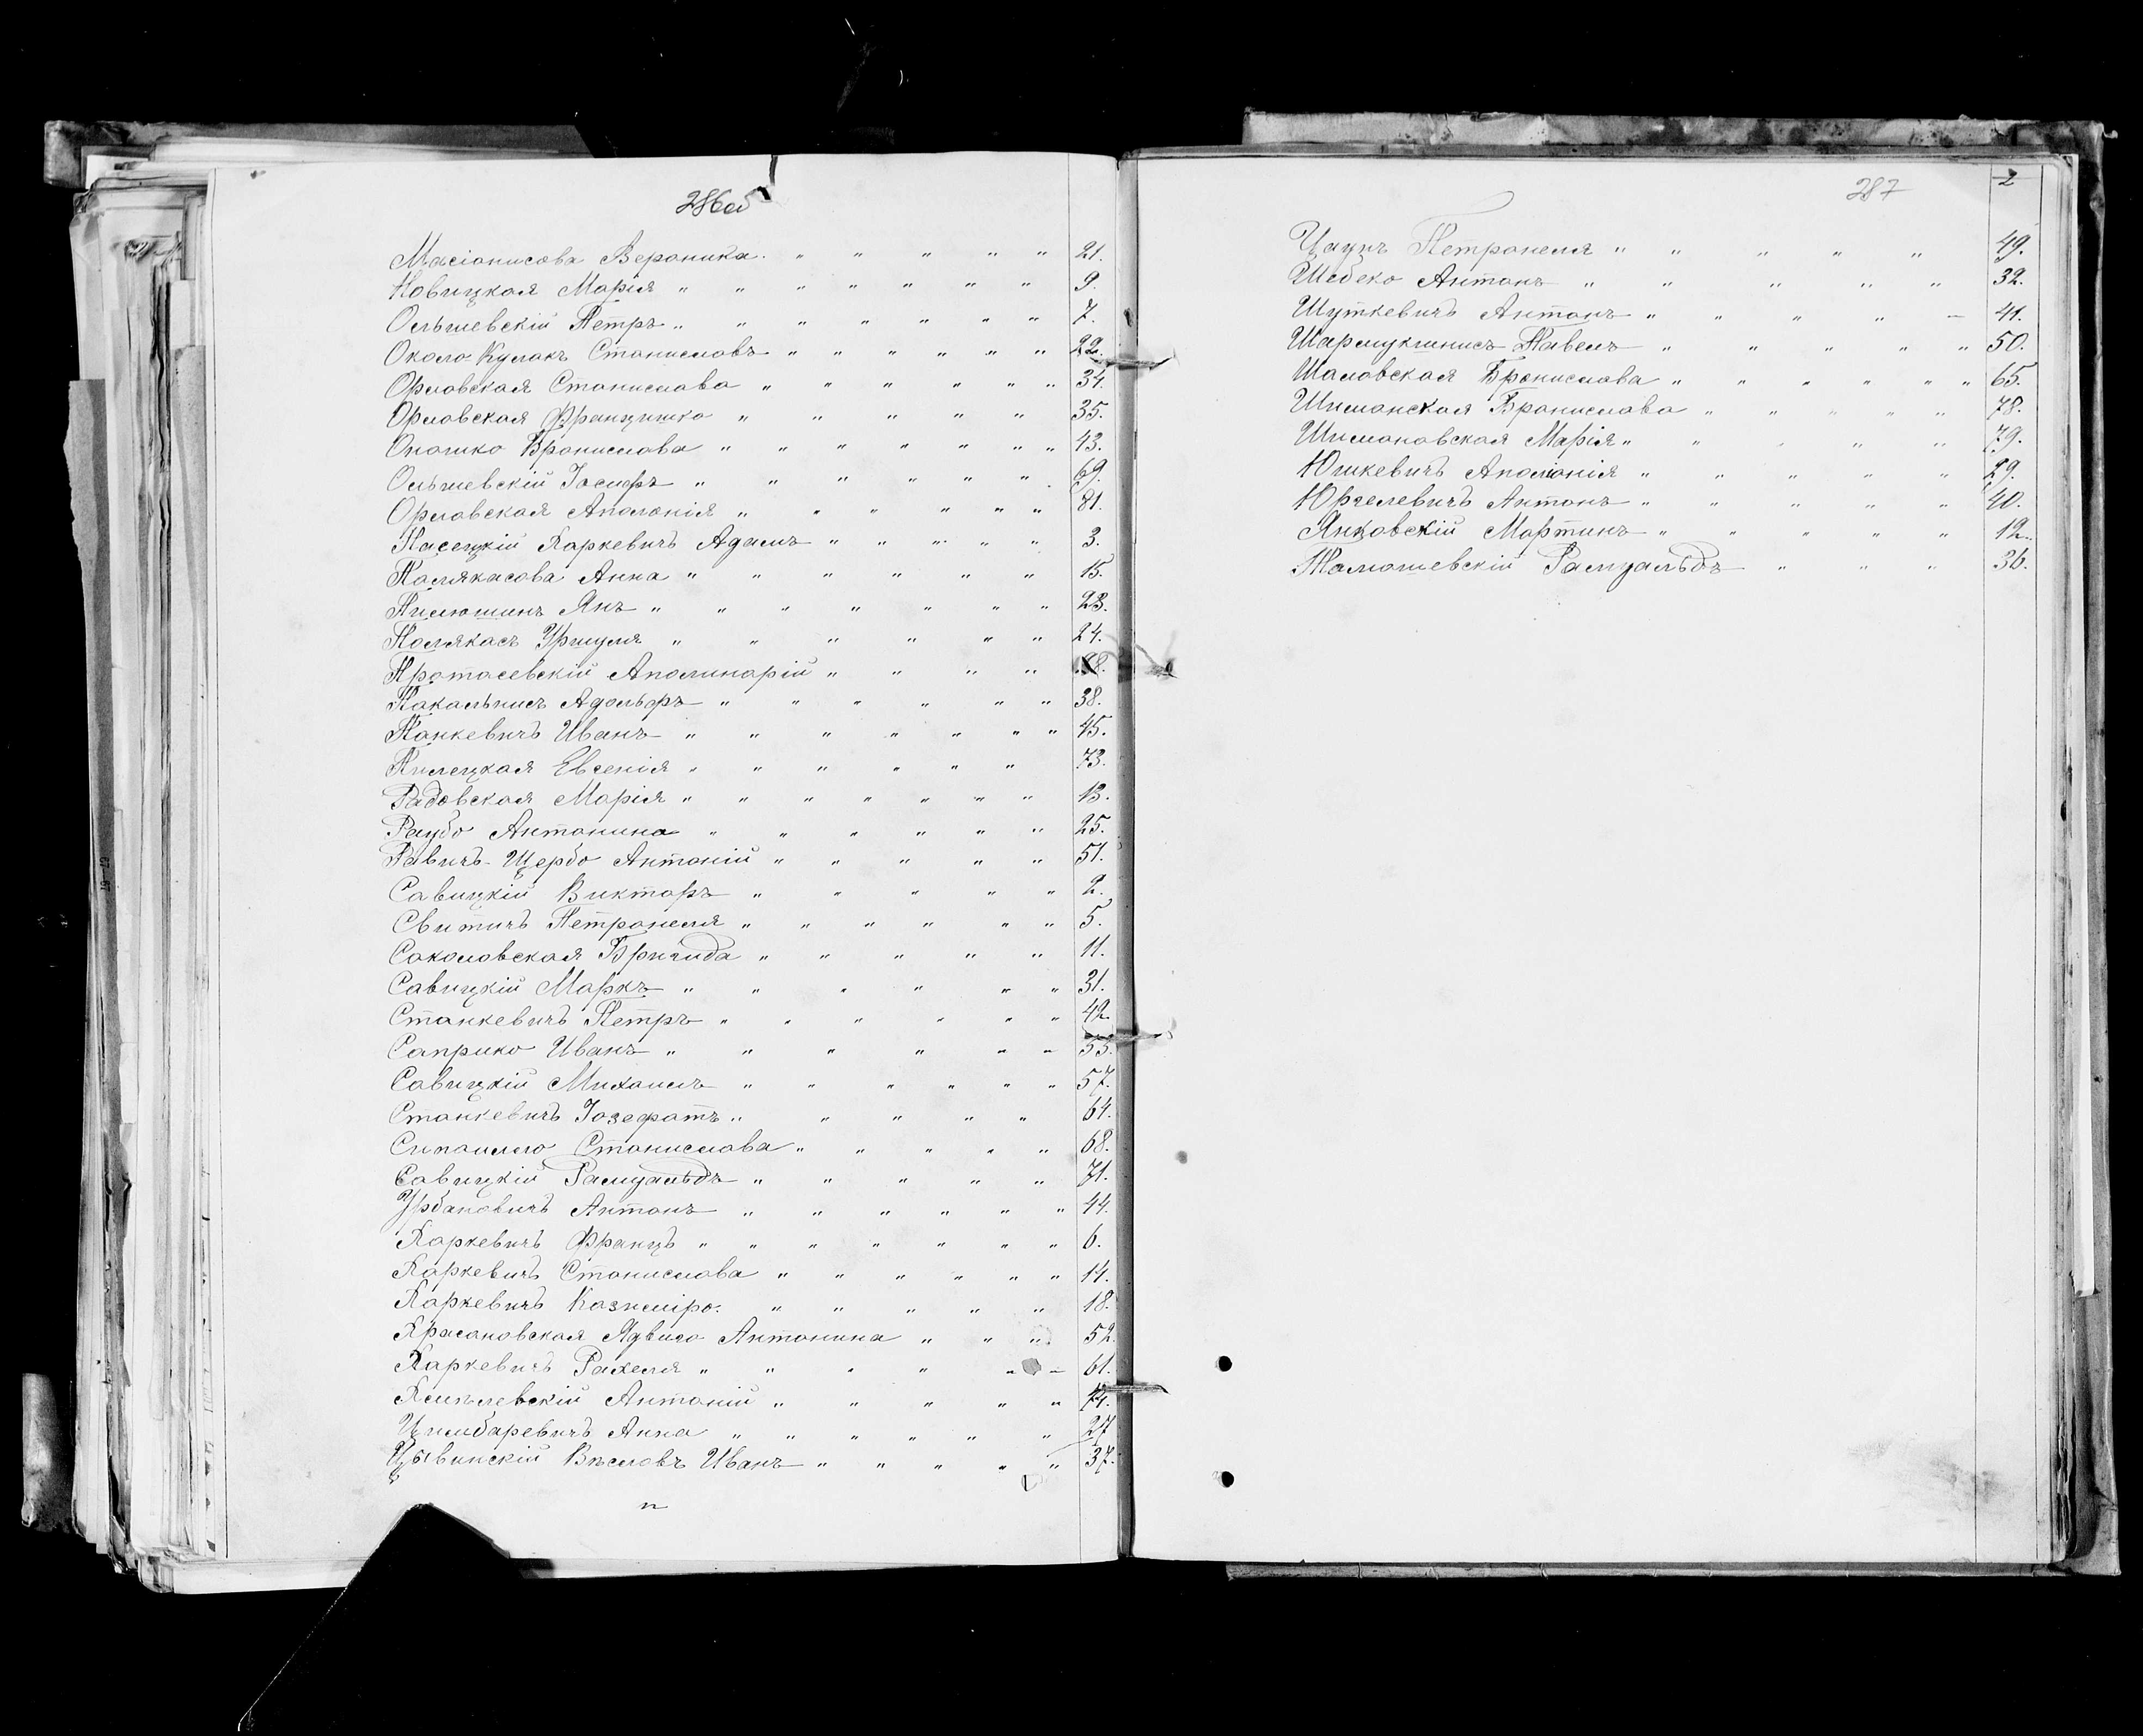 286об
Масіонисова Вероника. " " " " " 21.
Новицкая Марія " " " " " " " 9.
Ольшевскій Петръ " " " " " " " 7.
Около-Кулакъ Станиславъ " " " " " " 22.
Орловская Станислава " " " " " " 34.
Орловская Францишка " " " " " 35.
Оношко Бронислава " " " " " " " 43.
Ольшевскій Іосифъ " " " " " " 69.
Орловская Аполонія " " " " " " 81.
Пасецкій Харкевичъ Адамъ " " " " " 3.
Полякасова Анна " " " " " " 15.
Пилюшинъ Янъ " " " " " " " 23.
Полякасъ Уршуля " " " " " " 24.
Протасевскій Аполинарій " " " "
Покальнисъ Адольфъ " " " " " " 38.
Панкевичъ Иванъ " " " " " " " 45.
Пилецкая Евгенія " " " " " " 73.
Радовская Марія " " " " " " " 13.
Раубо Антонина " " " " " " 25.
Равичъ-Щербо Антоній " " " " " 51.
Савицкій Викторъ " " " " " 2.
Свитичъ Петронеля " " " " " " 5.
Соколовская Бригида " " " " " 11.
Савицкій Маркъ " " " " " " 31.
Станкевичъ Петръ " " " " " " 42.
Саприко Иванъ " " " " " " 53.
Савицкій Михаилъ " " " " " " 57.
Станкевичъ Іозефатъ " " " " " 64.
Сипайло Станислава " " " " " 68.
Савицкій Ромуальдъ " " " " " 71.
Урбановичъ Антонъ " " " " " " 44.
Харкевичъ Францъ " " " " " " " 6.
Харкевичъ Станислава " " " " " " 14.
Харкевичъ Казиміра. " " " " " 18.
Хрсановская Ядвига Антонина " " " 52.
Харкевичъ Рахеля " " " " " – 61.
Хмѣлевскій Антоній " " " " " 74.
Цимбаревичъ Анна " " " " " " 27
Цывинскій Вѣславъ Иванъ " " " " " 37.
287
2
Цауцъ Петронеля " " " " " 49.
Шебеко Антонъ " " " " " 32.
Шуткевичъ Антонъ " " " " – 41.
Шармукшнисъ Павелъ " " " " " 50.
Шаловская Бронислава " " " " " " 65.
Шиманская Бронислава " " " " " 78.
Шимановская Марія " " " " " 79.
Юшкевичъ Аполонія " " " " " 29.
Юргелевичъ Антонъ " " " " " 40.
Янковскій Мартинъ " " " " " 12.
Ромуальдъ " " " 36.